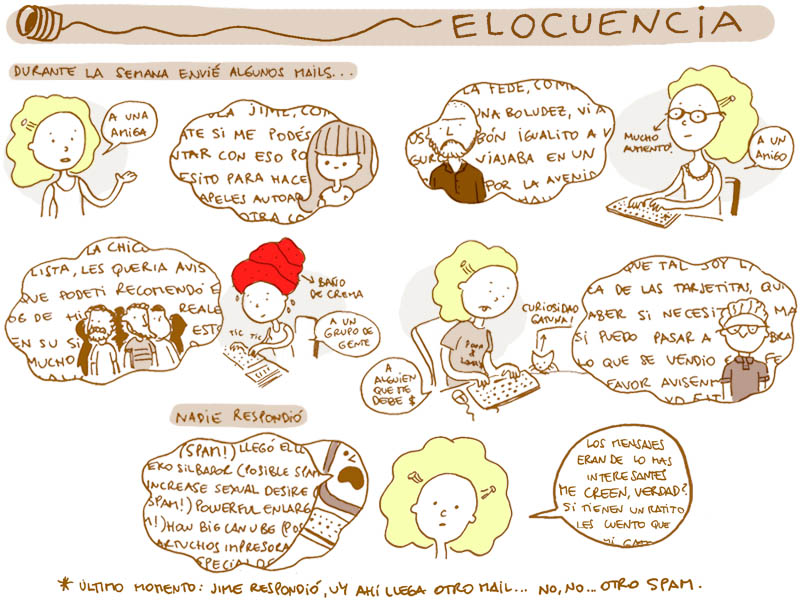 ELOCUENCIA
DURANTE LA SEMANA ENVIÉ ALGUNOS MAILS...
A UNA
AMIGA
OLA JIME, COM
ATE SI ME PODÉS
NTAR CON ESO PO
ESITO PARA HACE
APELES AUTOAR
OTRA CO
LA FEDE, COMO
UNA BOLUDEZ, VI A
BÓN IGUALITO A V
VIAJABA EN UN
POR LA AVENI
MUCHO
AUMENTO!
A UN
AMIGO
LA CHICO
LISTA, LES QUERIA AVIS
QUE PODETI RECOMENDÓ E
06 DE HI REALE
EN SU SI ESTO
MUCHO
BAÑO
DE CREMA
TIC TIC
A UN
GRUPO DE
GENTE
A
ALGUIEN
QUE ME
DEBE $
CURIOSIDAD
GATUNA!
QUE TAL SOY L
CA DE LAS TARJETITAS, QUI
ABER SI NECESIT MA
SI PUEDO PASAR A BRA
LO QUE SE VENDIO FE
FAVOR AVISENM
YO EST
NADIE RESPONDIÓ
(SPAM!) LLEGÓ EL
ERO SILBADOR (POSIBLE SPAM
INCREASE SEXUAL DESIRE (
SPAM!) POWERFUL ENLARG
M!) HOW BIG CAN U BE (POS
ARTUCHOS IMPRESORA
SPECIAL DE
LOS MENSAJES
ERAN DE LO MAS
INTERESANTES
ME CREEN, VERDAD?
SI TIENEN UN RATITO
LES CUENTO QUE
MI
* ÚLTIMO MOMENTO: JIME RESPONDIÓ, UY AHÍ LLEGA OTRO MAIL... NO, NO... OTRO SPAM.